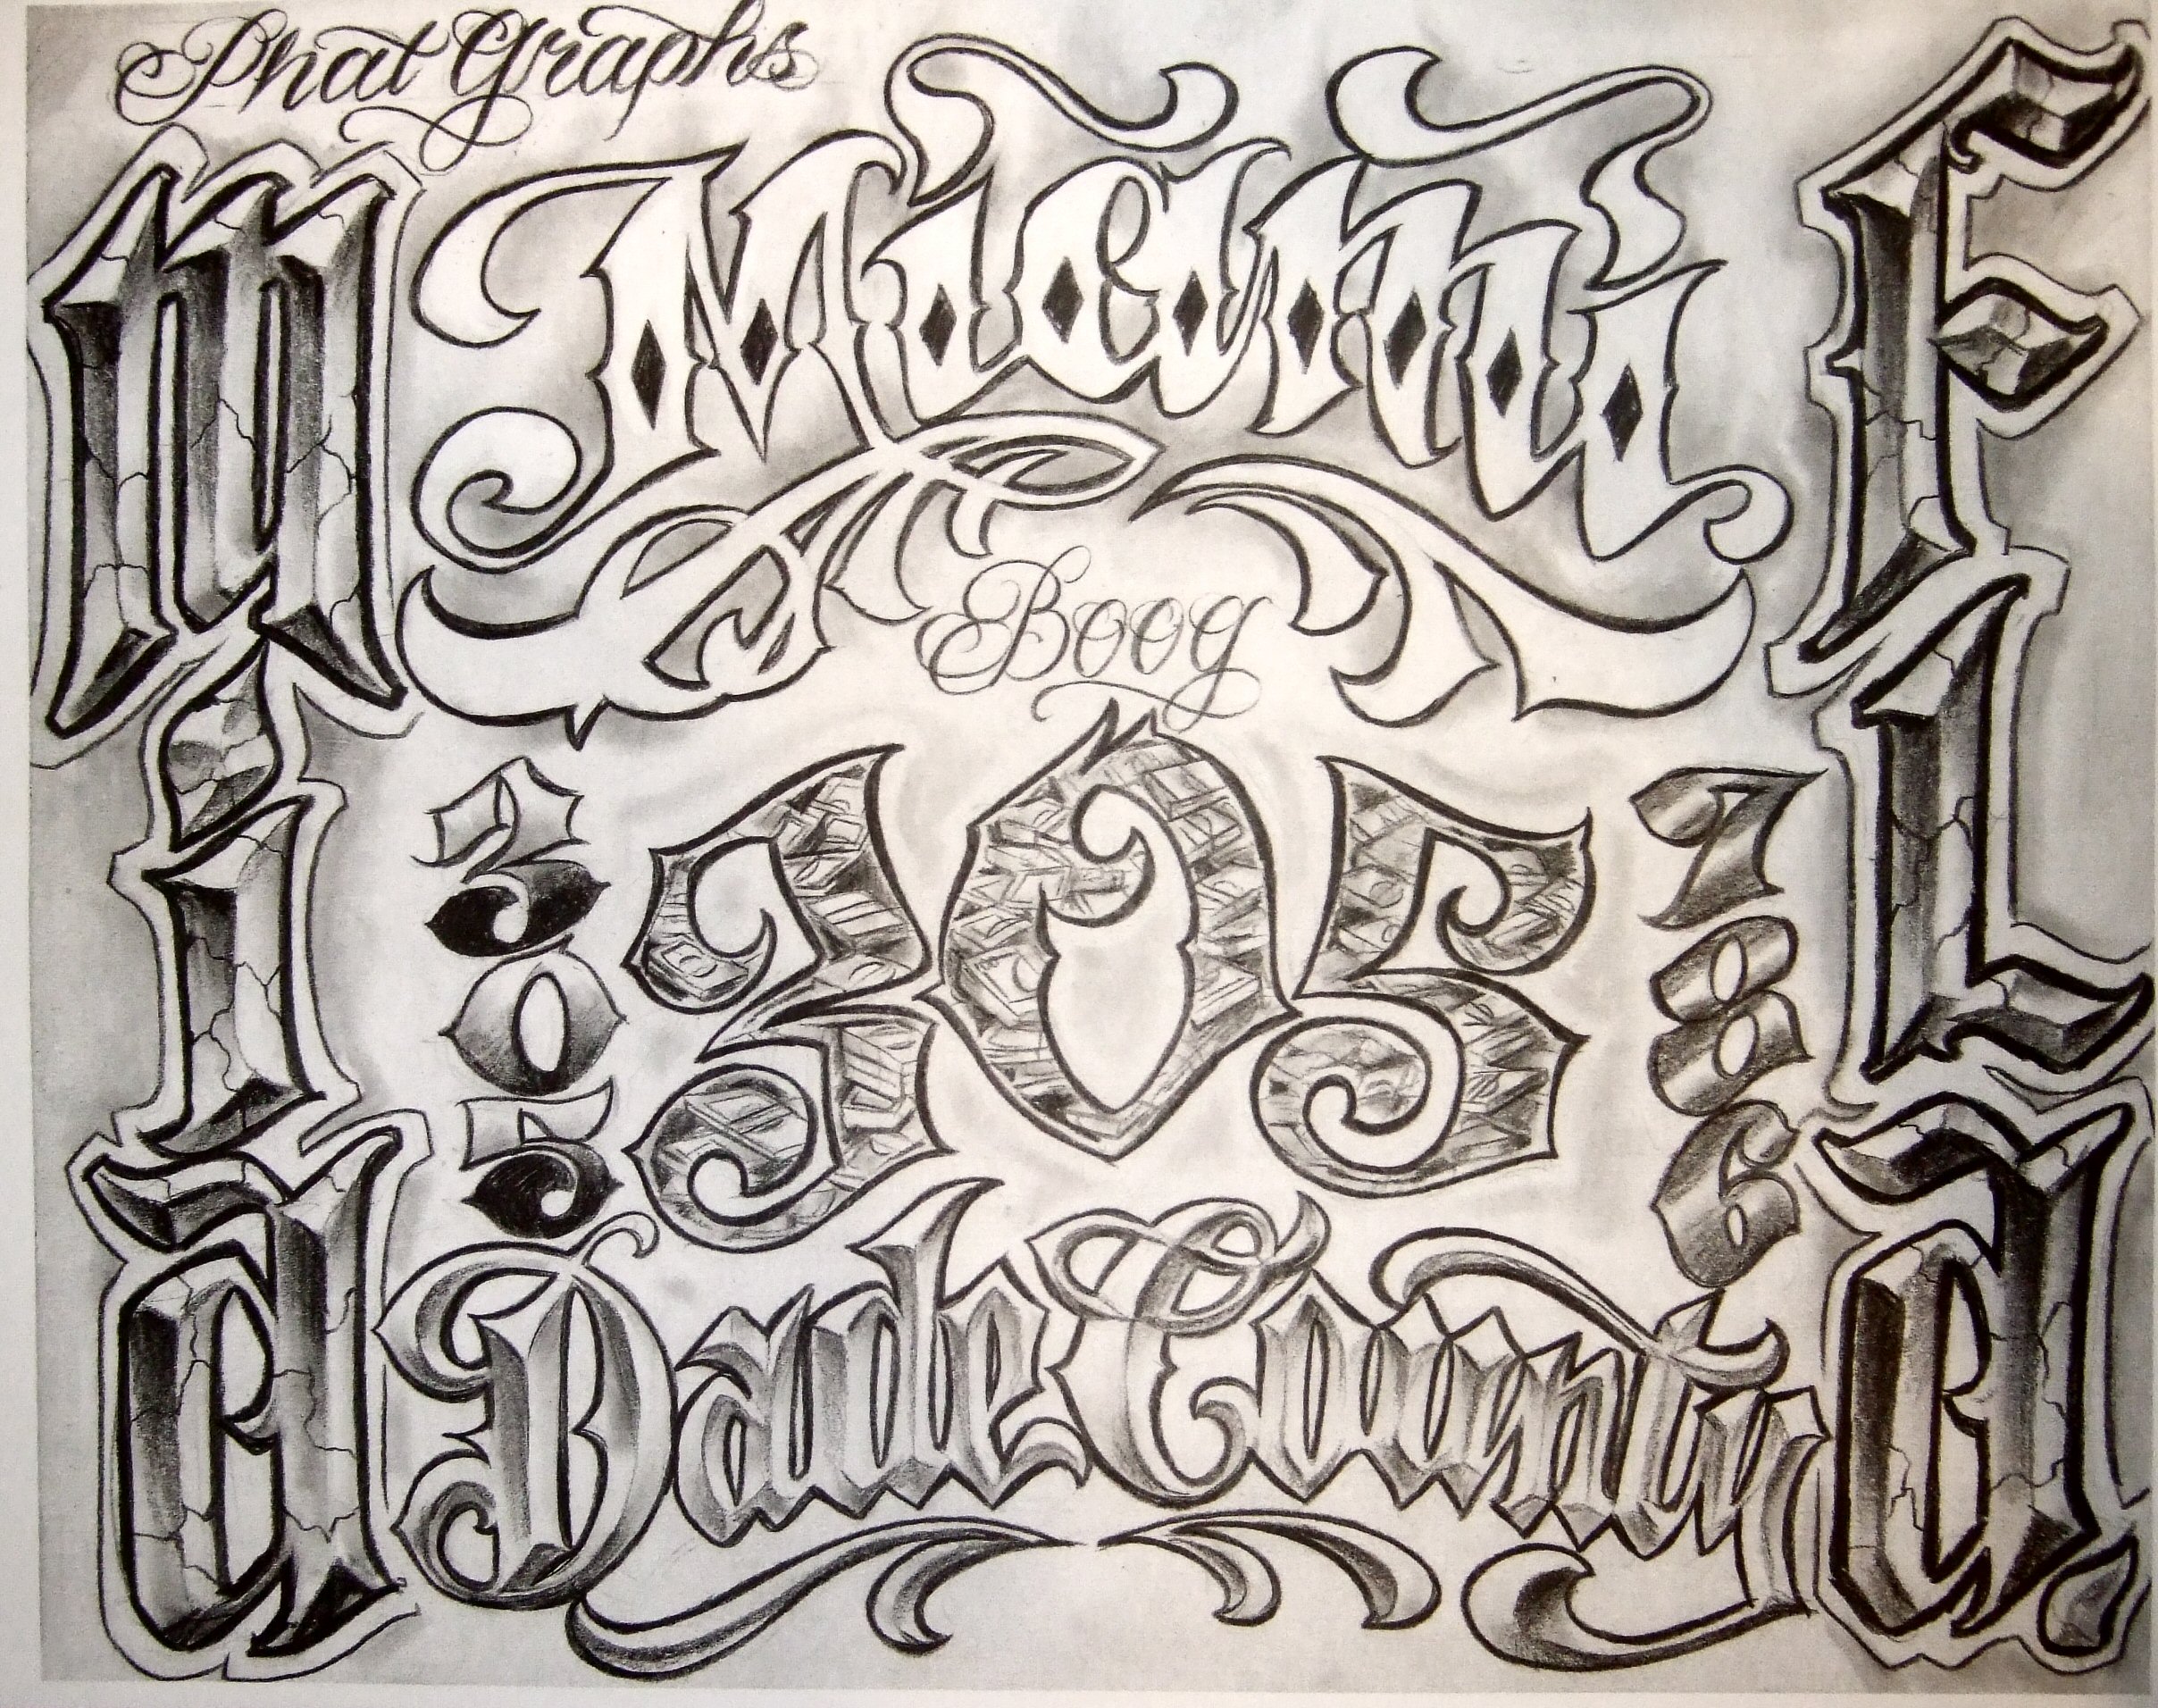 Phat Graphs
Miami
Boog
Mia
305
305
786
Fla.
Dade County